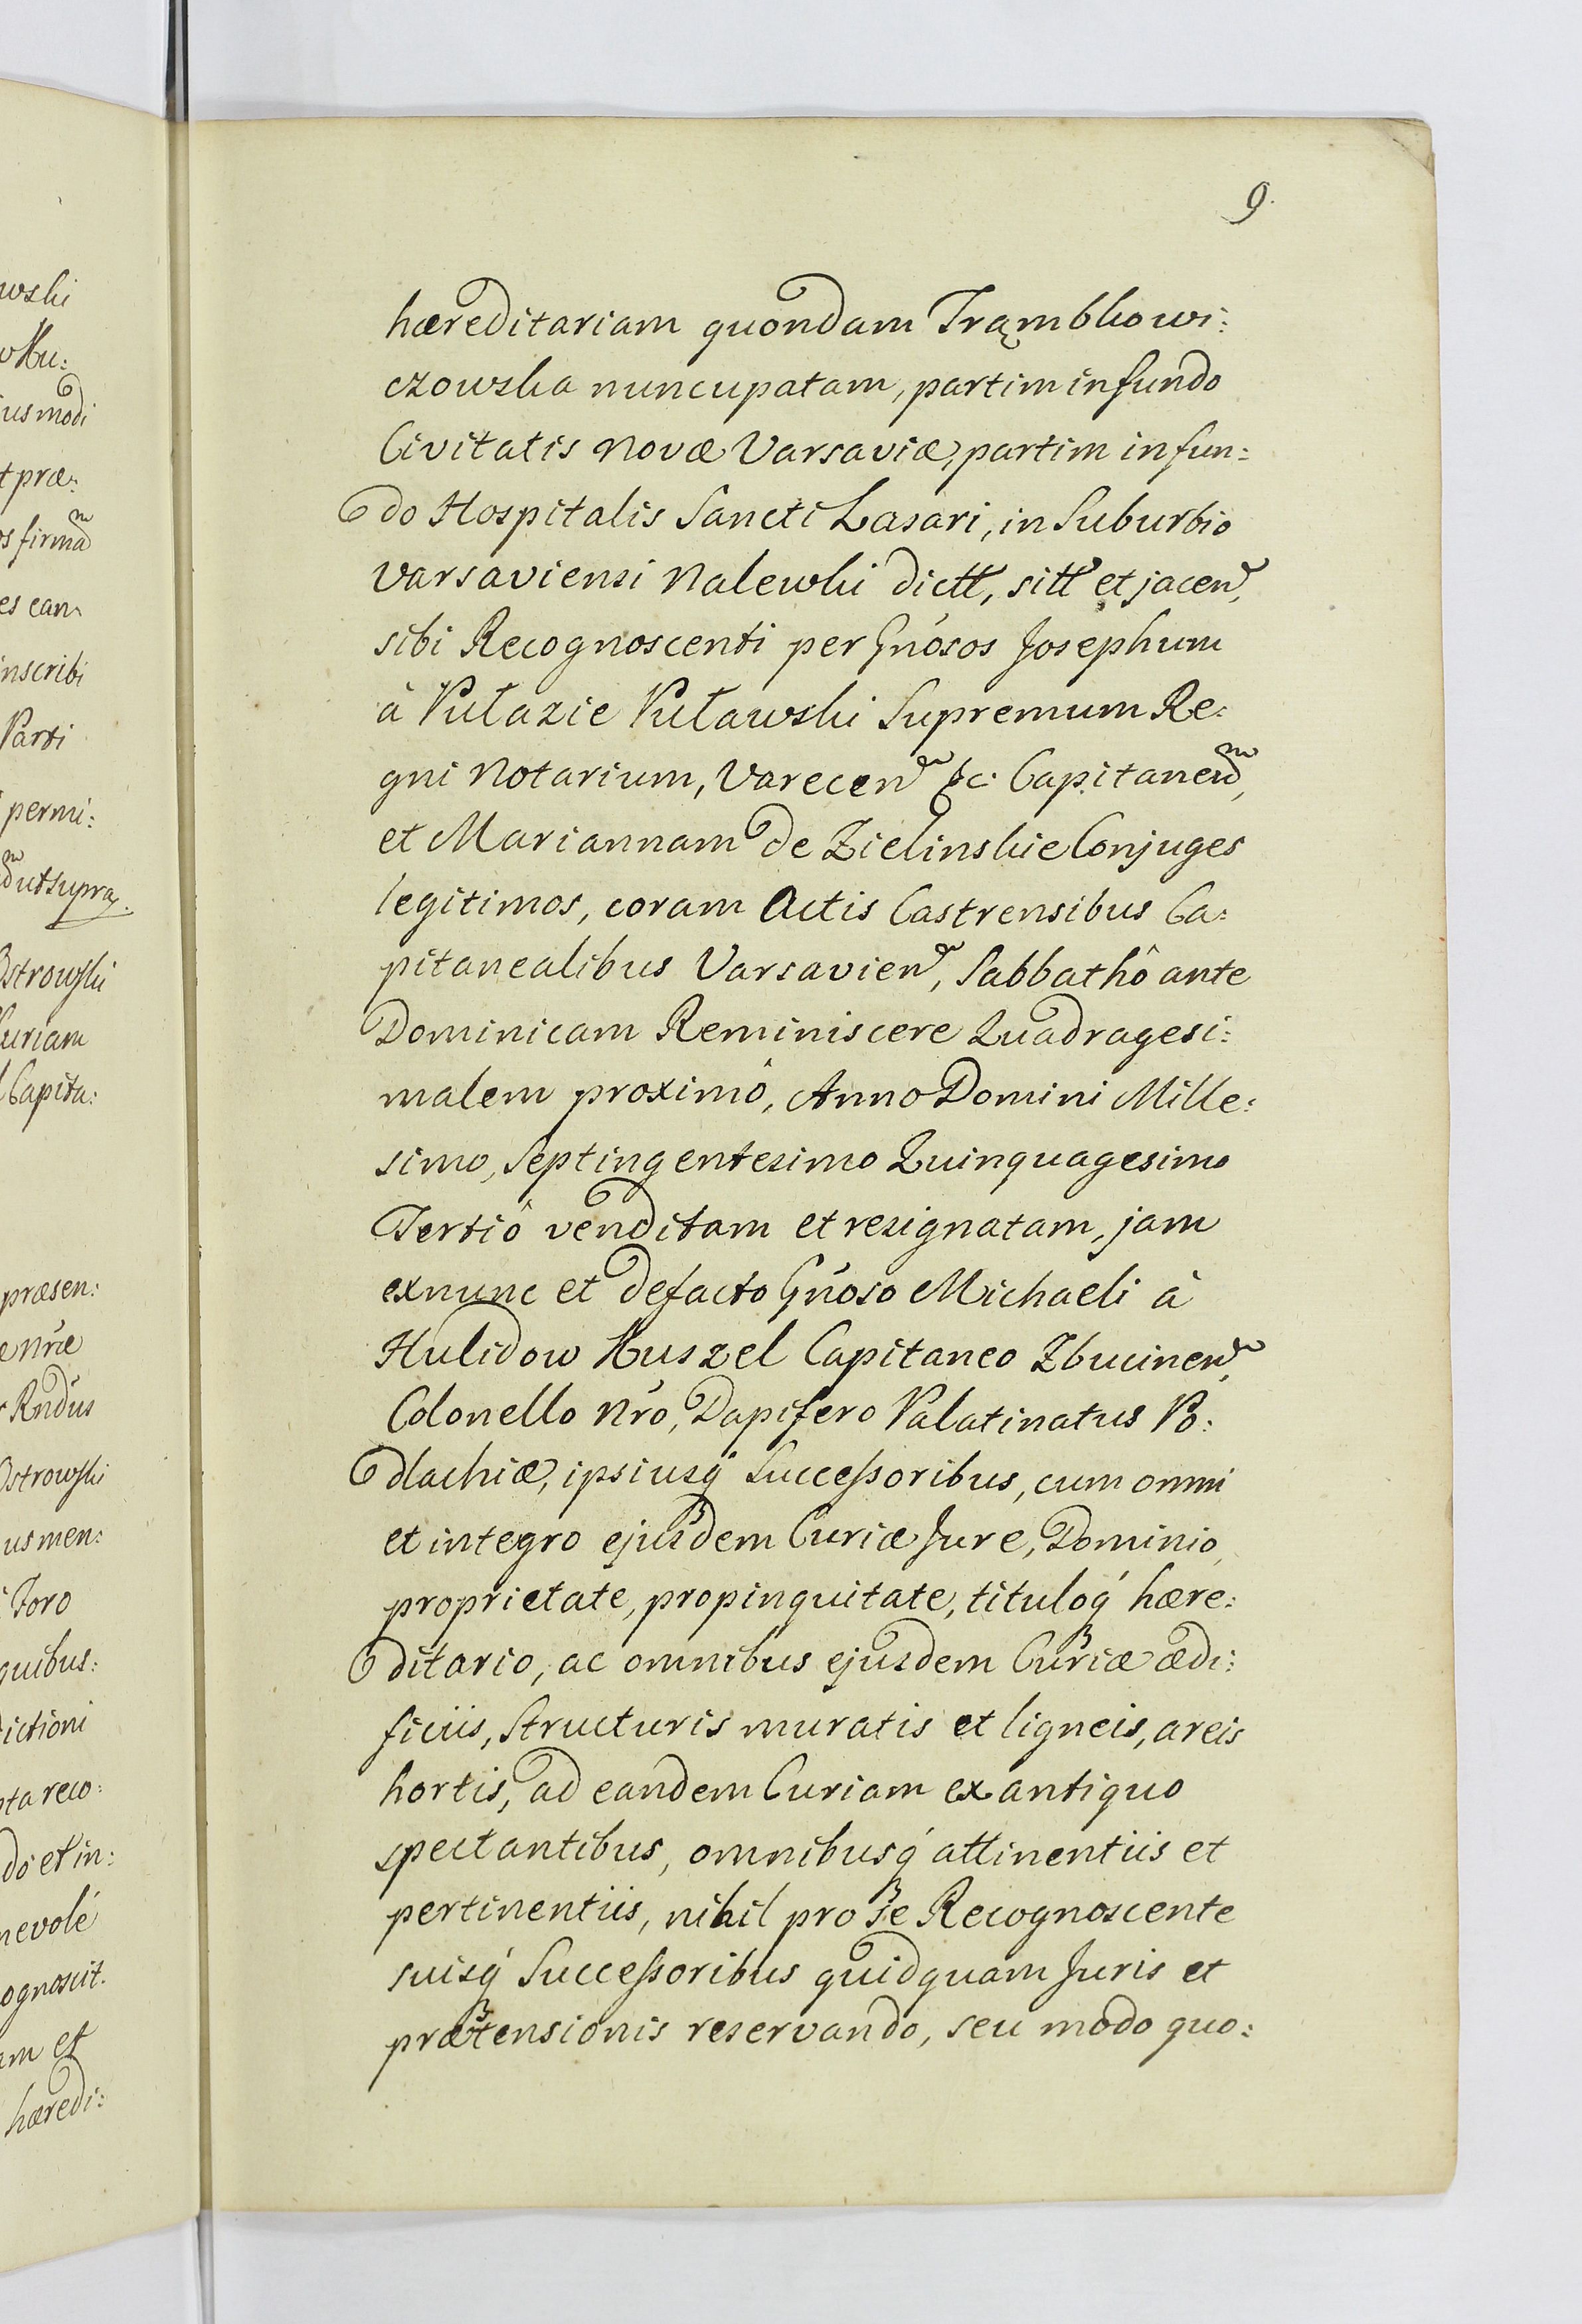 9.
hæreditariam quondam Trąmbkowi:
czowska nuncupatam, partim in fundo
Civitatis Novæ Varsaviæ, partim in fun:
do Hospitalis Sancti Lasari, in Suburbio
Varsaviensi Nalewki dictt, sitt et jacen,
sibi Recognoscenti per Gnósos Josephum
à Pułazie Puławski Supremum Re:
gni Notarium, Varecen &c. Capitaneum,
et Mariannam de Zielinskie Conjuges
legitimos, coram Actis Castrensibus Ca:
pitanealibus Varsavien, Sabbathô ante
Dominicam Reminiscere Quadragesi:
malem proximô, Anno Domini Mille:
simo, Septingentesimo Quinquagesimo
Tertiô venditam et resignatam, jam
exnunc et defacto Gnóso Michaeli à
Hulidow Kuszel Capitaneo Zbucinen,
Colonello Nró, Dapifero Palatinatus Po:
dlachiæ, ipsiusq́ Successoribus, cum omni
et integro ejusdem Curiæ Jure, Dominio,
proprietate, propinquitate, tituloq́ hære:
ditario, ac omnibus ejusdem Curiæ ædi:
ficiis, Structuris muratis et ligneis, areis
hortis, ad eandem Curiam ex antiquo
spectantibus, omnibusq́ attinentiis et
pertinentiis, nihil pro se Recognoscente
suisq́ Successoribus quidquam Juris et
prætensionis reservando, seu modo quo: